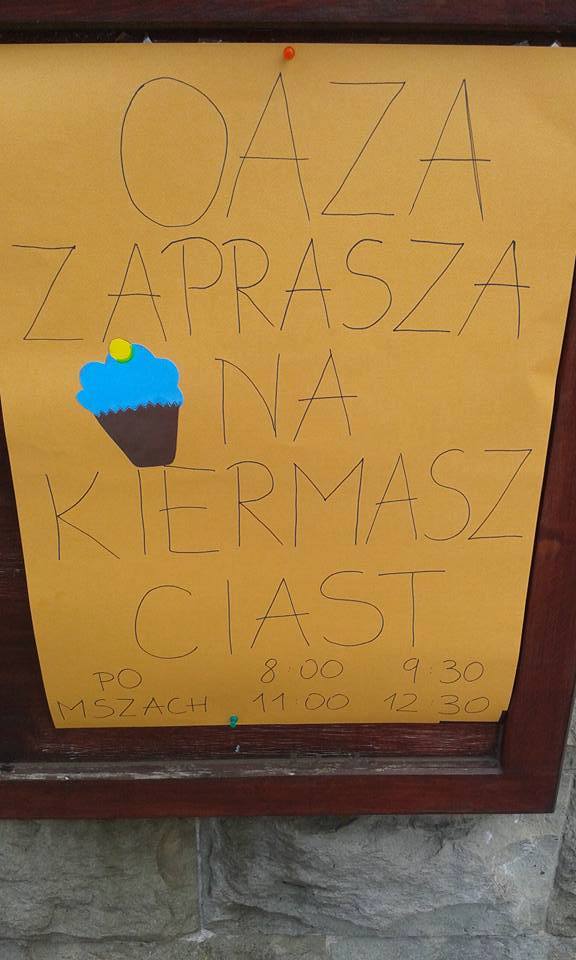 OAZA
ZAPRASZA
NA
KIERMASZ
CIAST
PO 8:00 9:30
MSZACH 11:00 12:30